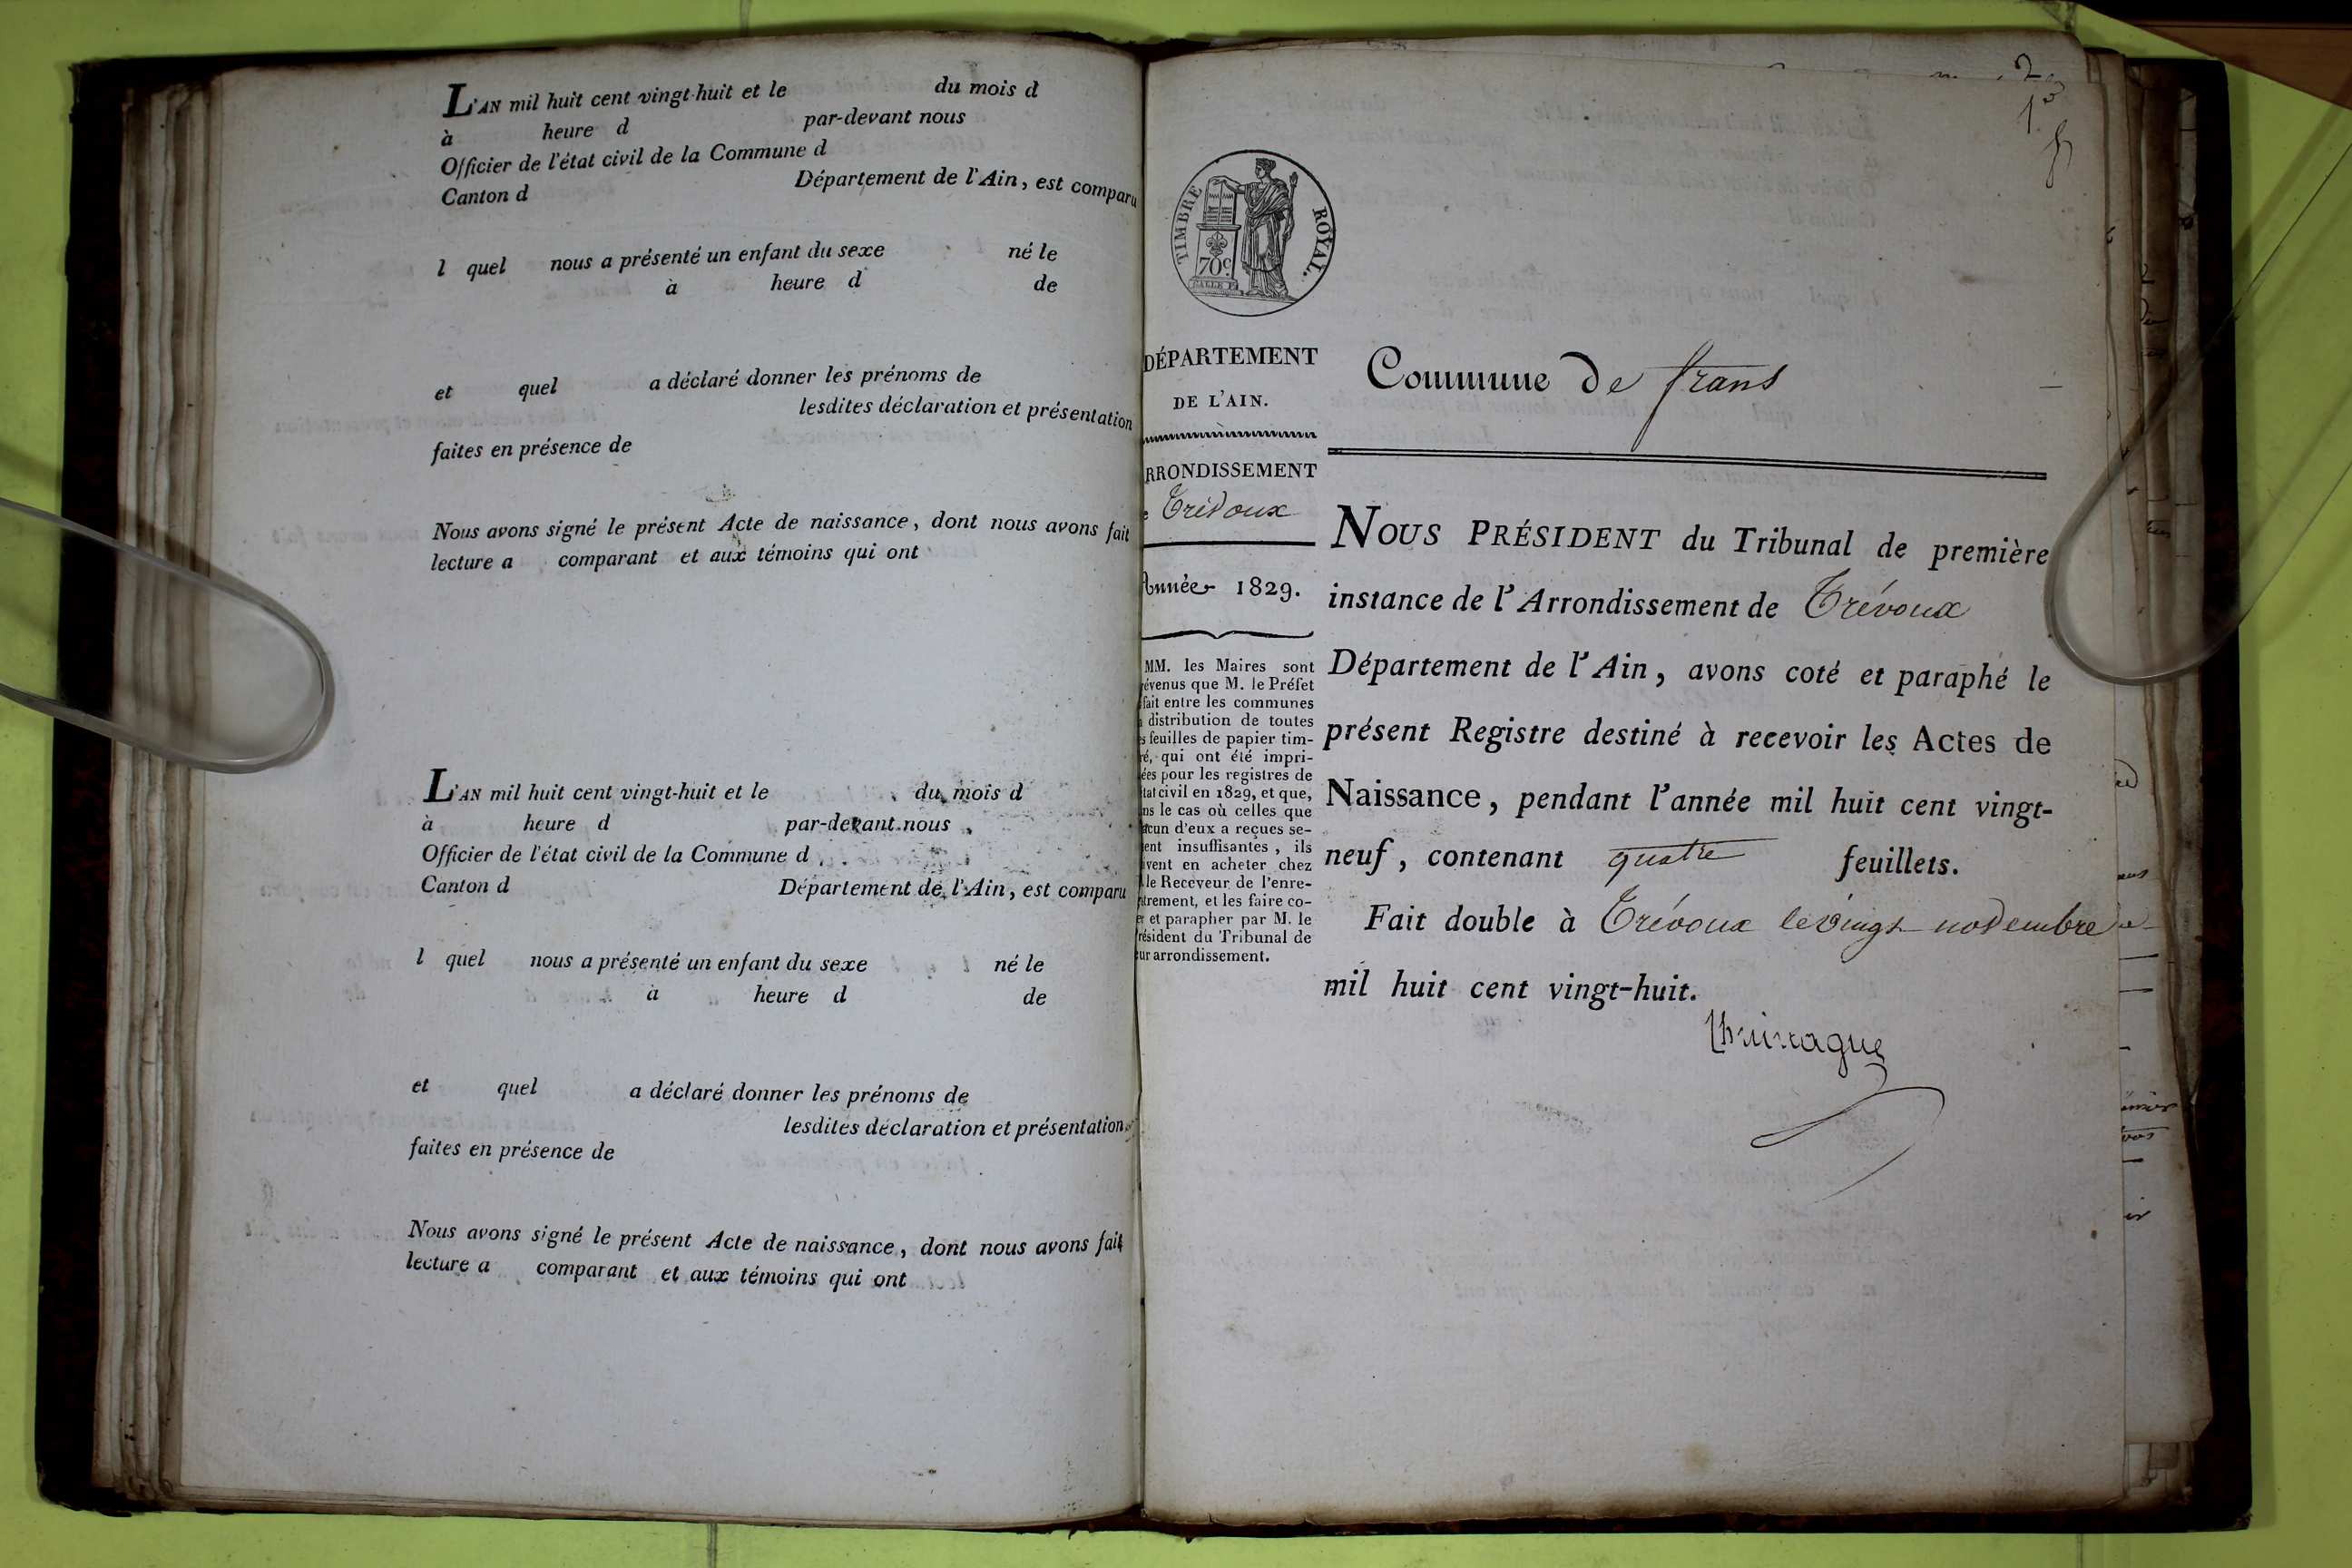 L'AN mil huit cent vingt-huit et le du mois d
à heure d par-devant nous
Officier de l'état civil de la Commune d
Canton d Département de l'Ain, est comparu
l quel nous a présenté un enfant du sexe né le
à heure d de
et quel a déclaré donner les prénoms de
lesdites déclaration et présentation
faites en présence de
Nous avons signé le présent Acte de naissance, dont nous avons fait
lecture a comparant et aux témoins qui ont
L'AN mil huit cent vingt-huit et le du mois d
à heure d par-devant nous
Officier de l'état civil de la Commune d
Canton d Département de l'Ain, est comparu
l quel nous a présenté un enfant du sexe né le
à heure d de
et quel a déclaré donner les prénoms de
lesdites déclaration et présentation
faites en présence de
Nous avons signé le présent Acte de naissance, dont nous avons fait
lecture a comparant et aux témoins qui ont
TIMBRE ROYAL.
70c.
DÉPARTEMENT
DE L'AIN.
RRONDISSEMENT
e Trévoux
Année 1829.
MM. les Maires sont
révenus que M. le Préfet
fait entre les communes
distribution de toutes
s feuilles de papier tim-
ré, qui ont été impri-
ées pour les registres de
tat civil en 1829, et que,
ns le cas où celles que
acun d'eux a reçues se-
ent insuffisantes, ils
ivent en acheter chez
le Receveur de l'enre-
trement, et les faire co-
er et parapher par M. le
résident du Tribunal de
ur arrondissement.
2
1er
Commune de frans
NOUS PRÉSIDENT du Tribunal de première
instance de l'Arrondissement de Trévoux
Département de l'Ain, avons coté et paraphé le
présent Registre destiné à recevoir les Actes de
Naissance, pendant l'année mil huit cent vingt-
neuf, contenant quatre feuillets.
Fait double à Trévoux le vingt novembre
mil huit cent vingt-huit.